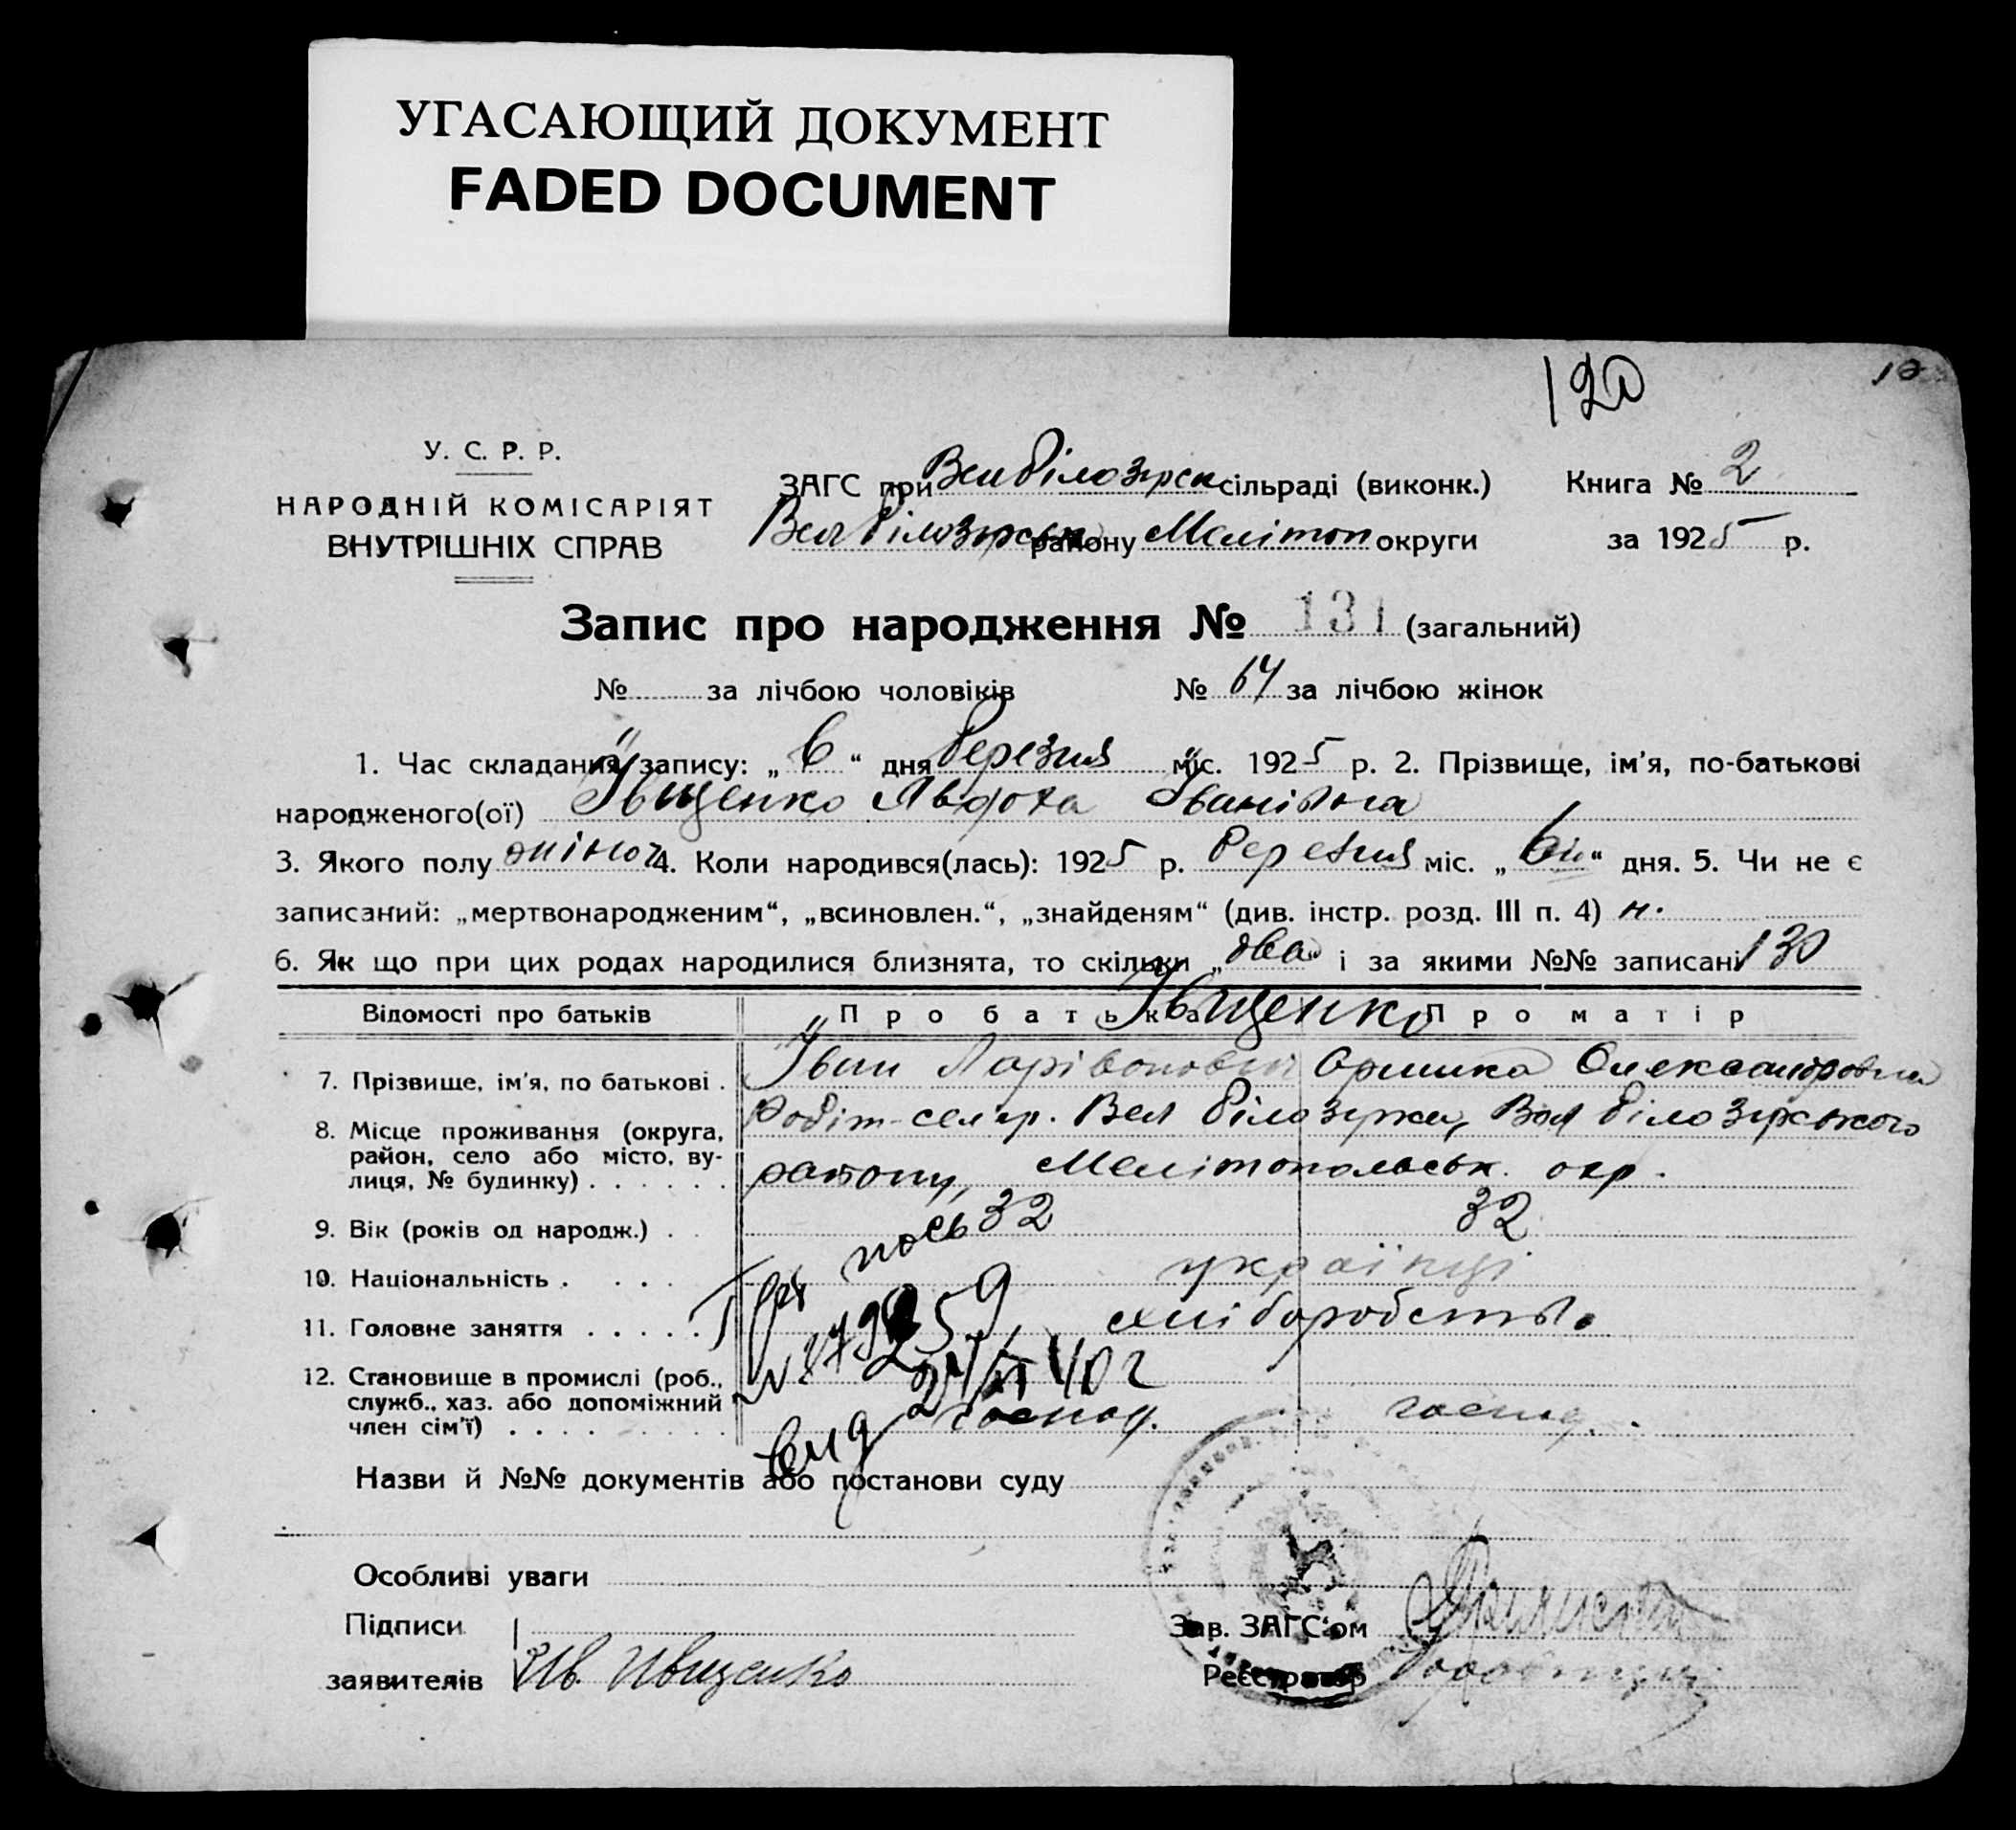 УГАСАЮЩИЙ ДОКУМЕНТ
FADED DOCUMENT
120
12
У. С. Р. Р.
НАРОДНІЙ КОМІСАРІЯТ
ВНУТРІШНІХ СПРАВ
ЗАГС при Вел Білозірск сільраді (виконк.) Книга № 2
Вел Білозірськ району Мелітоп округи за 1925 р.
Запис про народження № 131 (загальний)
№ за лічбою чоловіків № 64 за лічбою жінок
1. Час складання запису: „ 6 “ дня березня міс. 1925 р. 2. Прізвище, ім'я, по-батькові
народженого(ої) Іващенко Явдоха Іванівна
3. Якого полу жіноч 4. Коли народився(лась): 1925 р. березня міс. „ 6 “ дня. 5. Чи не є
записаний: „мертвонародженим“, „всиновлен.“, „знайденям“ (див. інстр. розд. III п. 4) н.
6. Як що при цих родах народилися близнята, то скільки „два“ і за якими №№ записані 130
Відомості про батьків Про батька Про матір
Іващенко
7. Прізвище, ім'я, по батькові . Іван Ларівонович Оришка Олександровна
8. Місце проживання (округа, район, село або місто, вулиця, № будинку) . . . . . . Вел Білозірка, Вел Білозірського
району, Мелітопольськ. окр.
9. Вік (років од народж.) . . 32 32
10. Національність . . . . українці
11. Головне заняття . . . . . хліборобство
12. Становище в промислі (роб.,
служб., хаз. або допоміжний
член сім'ї) . . . . . . . . . господ. господ.
Назви й №№ документів або постанови суду
Особливі уваги
Підписи
Зав. ЗАГС'ом
заявителів Ив. Иващенко
Реєстратор